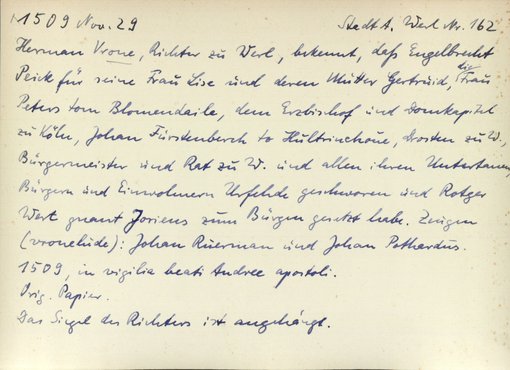 1509 Nov. 29 Stadt A. Werl Nr. 162
Herman Vrone, Richter zu Werl, bekennt, daß Engelbrecht
Peick für seine Frau Lise und deren Mutter Gertrud, die Frau
Peters tom Blomendaile, dem Erzbischof und Domkapitel
zu Köln, Johan Fürstenberch to Hultrinchoue, Drosten zu W.,
Bürgermeister und Rat zu W. und allen ihren Untertanen,
Bürgern und Einwohnern Urfehde geschworen und Rotger
Wert gnant Joriens zum Bürgen gesetzt habe. Zeugen
(vronelude): Johan Ruerman und Johan Pothardus.
1509, in vigilia beati Andree apostoli.
Orig. Papier.
Das Siegel des Richters ist angehängt.